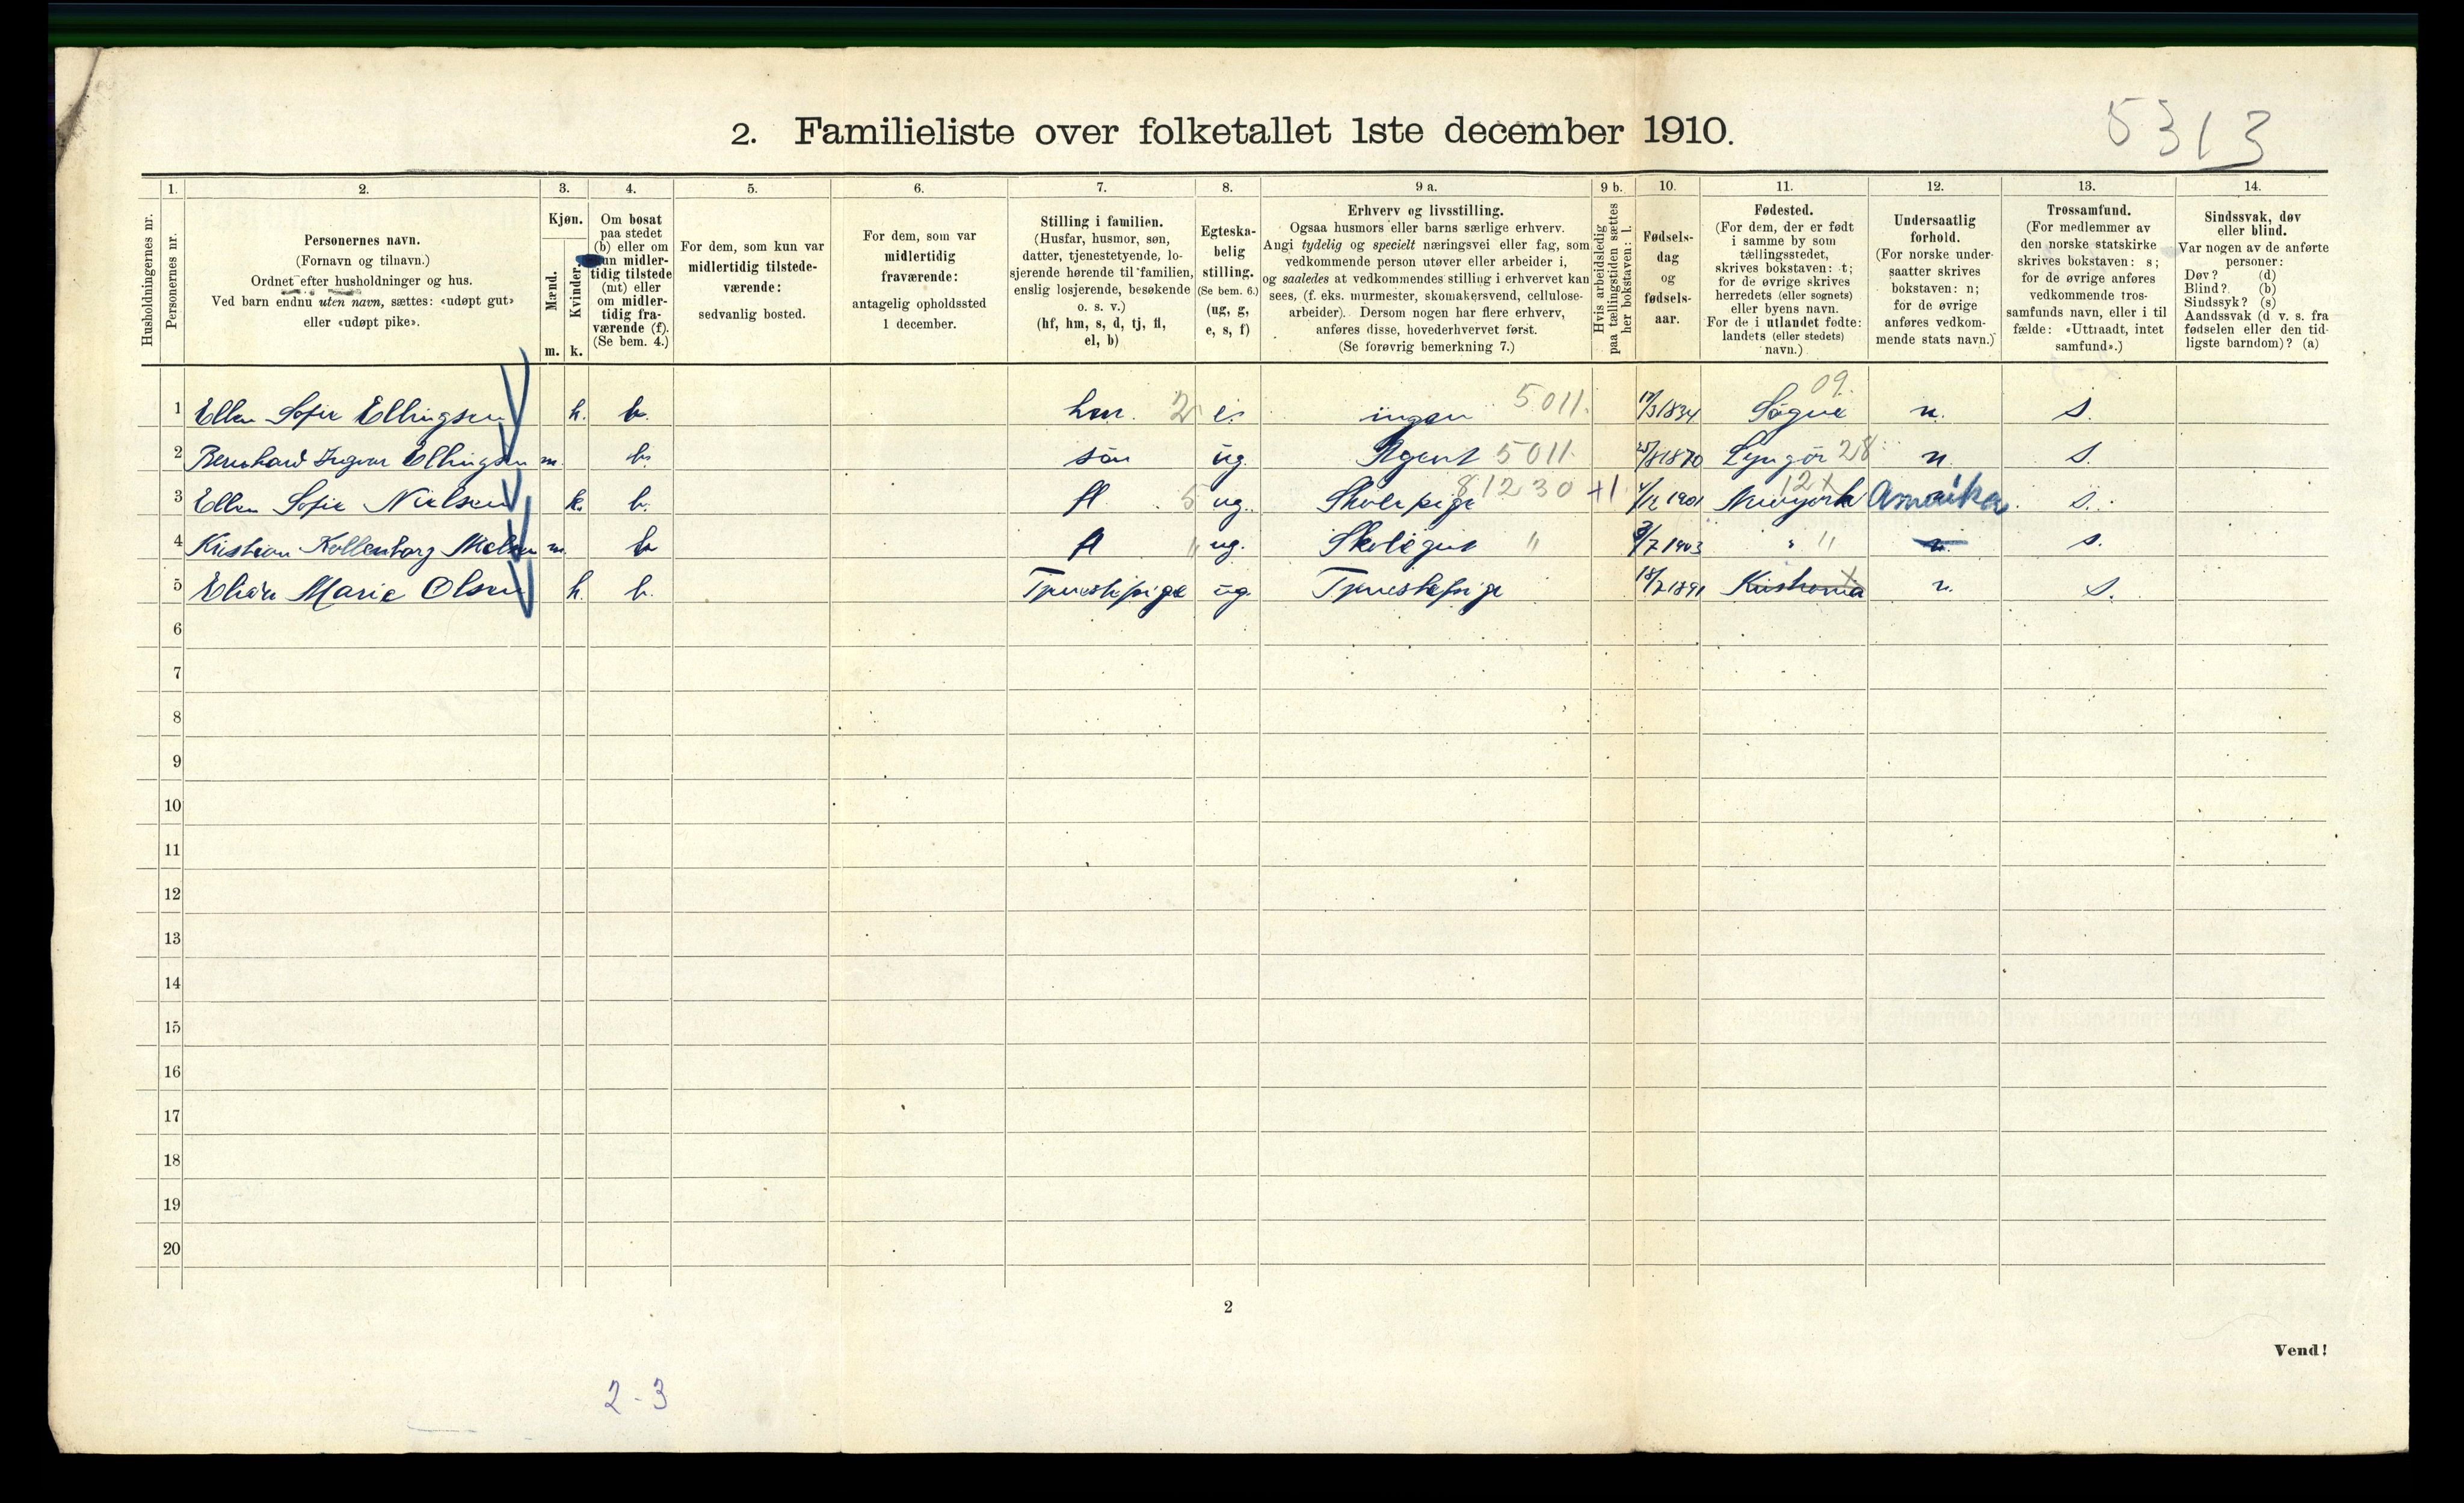 5313
2. Familieliste over folketallet 1ste december 1910.
1. 2. 3. 4. 5. 6. 7. 8. 9 a. 9 b. 10. 11. 12. 13. 14.
Husholdningernes nr.
Personernes nr.
Personernes navn.
(Fornavn og tilnavn.)
Ordnet efter husholdninger og hus.
Ved barn endnu uten navn, sættes: «udøpt gut»
eller «udøpt pike».
Kjøn.
Mænd.
Kvinder.
m. k.
Om bosat
paa stedet
(b) eller om
kun midler-
tidig tilstede
(mt) eller
om midler-
tidig fra-
værende (f).
(Se bem. 4.)
For dem, som kun var
midlertidig tilstede-
værende:
sedvanlig bosted.
For dem, som var
midlertidig
fraværende:
antagelig opholdssted
1 december.
Stilling i familien.
(Husfar, husmor, søn,
datter, tjenestetyende, lo-
sjerende hørende til familien,
enslig losjerende, besøkende
o. s. v.)
(hf, hm, s, d, tj, fl,
el, b)
Egteska-
belig
stilling.
(Se bem. 6.)
(ug, g,
e, s, f)
Erhverv og livsstilling.
Ogsaa husmors eller barns særlige erhverv.
Angi tydelig og specielt næringsvei eller fag, som
vedkommende person utøver eller arbeider i,
og saaledes at vedkommendes stilling i erhvervet kan
sees, (f. eks. murmester, skomakersvend, cellulose-
arbeider). Dersom nogen har flere erhverv,
anføres disse, hovederhvervet først.
(Se forøvrig bemerkning 7.)
Hvis arbeidsledig
paa tællingstiden sættes
her bokstaven: l.
Fødsels-
dag
og
fødsels-
aar.
Fødested.
(For dem, der er født
i samme by som
tællingsstedet,
skrives bokstaven: t;
for de øvrige skrives
herredets (eller sognets)
eller byens navn.
For de i utlandet fødte:
landets (eller stedets)
navn.)
Undersaatlig
forhold.
(For norske under-
saatter skrives
bokstaven: n;
for de øvrige
anføres vedkom-
mende stats navn.)
Trossamfund.
(For medlemmer av
den norske statskirke
skrives bokstaven: s;
for de øvrige anføres
vedkommende tros-
samfunds navn, eller i til
fælde: «Uttraadt, intet
samfund».)
Sindssvak, døv
eller blind.
Var nogen av de anførte
personer:
Døv? (d)
Blind? (b)
Sindssyk? (s)
Aandssvak (d v. s. fra
fødselen eller den tid-
ligste barndom)? (a)
1 Ellen Sofie Ellingsen k. b. hm. 2 e. ingen 5011. 17/3 1834 Søgne 09. n. s.
2 Bernhard Ingvar Ellingsen m. b. søn ug. Agent 5011. 25/8 1870 Lyngør 28 n. s.
3 Ellen Sofie Nielsen k. b. fl. 5 ug. Skolepige 81230 +1 1901 Newyork 12x Amerika s.
4 Kristian Kollenborg Nielsen m. b fl " ug. Skolegut " 1903 " " n. s.
5 Marie Olsen k. b. Tjenestepige ug. Tjenestepige 18/2 1891 Kristiania n. s.
6
7
8
9
10
11
12
13
14
15
16
17
18
19
20
2
Vend!
2-3